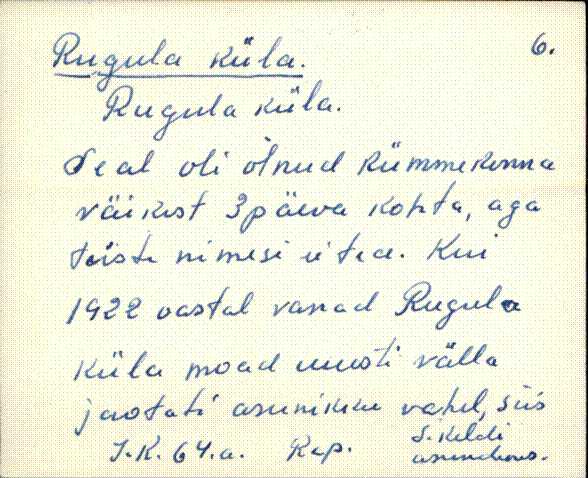 Rugula küla. 6.
Rugula küla.
Seal oli olnud kümmekonna
väikest 3 päeva kohta, aga
teiste nimesi ei tea. Kui
1922 aastal vanad Rugula
küla moad uuesti välla
jaotati asunikku vahel, siis
J.K. 64.a. Rap.